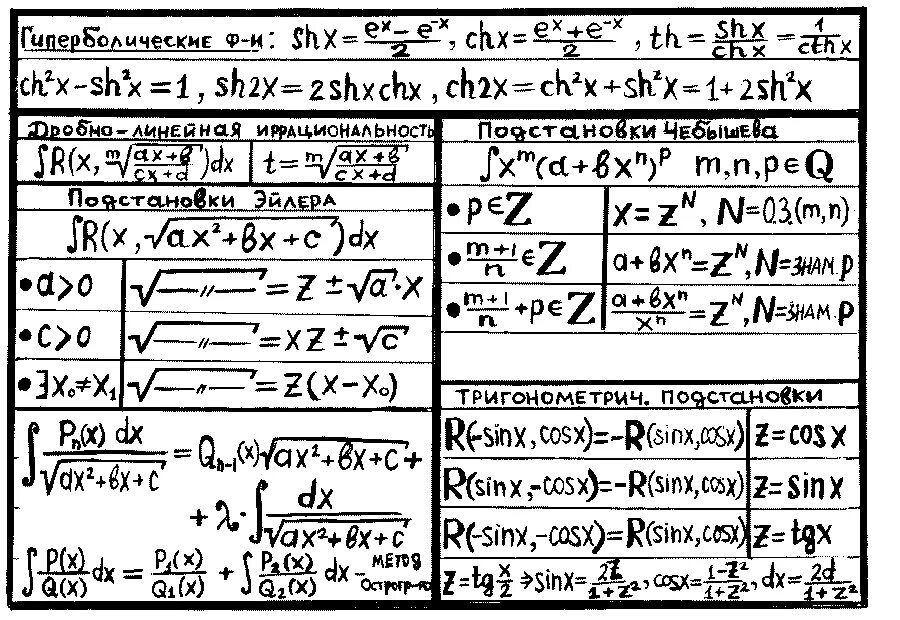 Гиперболические ф-и: shx = (eˣ − e⁻ˣ)/2, chx = (eˣ + e⁻ˣ)/2, th = shx/chx = 1/cthx
ch²x − sh²x = 1, sh2x = 2shxchx, ch2x = ch²x + sh²x = 1 + 2sh²x
Дробно-линейная иррациональность
∫R(x, ᵐ√((ax+в)/(cx+d)))dx | t = ᵐ√((ax+в)/(cx+d))
Подстановки Эйлера
∫R(x, √(ax²+вx+c))dx
• a>0 | √(—〃—) = z ± √a·x
• c>0 | √(—〃—) = xz ± √c
• ∃x₀≠x₁ | √(—〃—) = z(x−x₀)
∫ Pₙ(x)dx/√(ax²+вx+c) = Qₙ₋₁(x)√(ax²+вx+c) +
+ λ·∫ dx/√(ax²+вx+c)
∫ P(x)/Q(x) dx = P₁(x)/Q₁(x) + ∫ P₂(x)/Q₂(x) dx – метод
Остгр-го
Подстановки Чебышева
∫xᵐ(a+вxⁿ)ᵖ m,n,p∈Q
• p∈Z | x = zᴺ, N = О.З.(m,n)
• (m+1)/n ∈Z | a+вxⁿ = zᴺ, N = знам. p
• (m+1)/n + p∈Z | (a+вxⁿ)/xⁿ = zᴺ, N = знам. p
Тригонометрич. подстановки
R(-sinx, cosx) = -R(sinx, cosx) | z = cosx
R(sinx, -cosx) = -R(sinx, cosx) | z = sinx
R(-sinx, -cosx) = R(sinx, cosx) | z = tgx
z = tg x/2 ⇒ sinx = 2z/(1+z²), cosx = (1−z²)/(1+z²), dx = 2d/(1+z²)